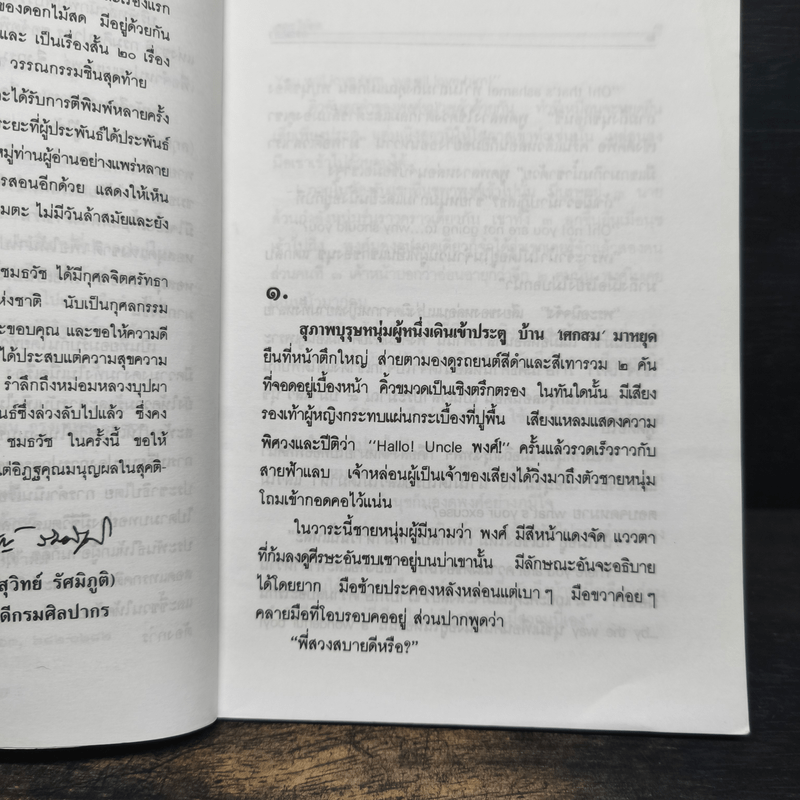 ของดอกไม้สด มีอยู่ด้วยกัน
และ เป็นเรื่องสั้น ๒๐ เรื่อง
วรรณกรรมชิ้นสุดท้าย
ะได้รับการตีพิมพ์หลายครั้ง
ระยะที่ผู้ประพันธ์ได้ประพันธ์
หมู่ท่านผู้อ่านอย่างแพร่หลาย
รสอนอีกด้วย แสดงให้เห็น
มตะ ไม่มีวันล้าสมัยและยัง
ชมธวัช ได้มีกุศลจิตศรัทธา
ห่งชาติ นับเป็นกุศลกรรม
ะขอบคุณ และขอให้ความดี
ได้ประสบแต่ความสุขความ
รำลึกถึงหม่อมหลวงบุปผา
นธ์ซึ่งล่วงลับไปแล้ว ซึ่งคง
ชมธวัช ในครั้งนี้ ขอให้
ต่อิฏฐคุณมนุญผลในสุคติ-
สุวิทย์ รัศมิภูติ)
ดีกรมศิลปากร
๑.
สุภาพบุรุษหนุ่มผู้หนึ่งเดินเข้าประตู บ้าน 'เศกสม' มาหยุด
ยืนที่หน้าตึกใหญ่ ส่ายตามองดูรถยนต์สีดำและสีเทารวม ๒ คัน
ที่จอดอยู่เบื้องหน้า คิ้วขมวดเป็นเชิงตรึกตรอง ในทันใดนั้น มีเสียง
รองเท้าผู้หญิงกระทบแผ่นกระเบื้องที่ปูพื้น เสียงแหลมแสดงความ
พิศวงและปีติว่า ''Hallo! Uncle พงศ์!'' ครั้นแล้วรวดเร็วราวกับ
สายฟ้าแลบ เจ้าหล่อนผู้เป็นเจ้าของเสียงได้วิ่งมาถึงตัวชายหนุ่ม
โถมเข้ากอดคอไว้แน่น
ในวาระนี้ชายหนุ่มผู้มีนามว่า พงศ์ มีสีหน้าแดงจัด แววตา
ที่ก้มลงดูศีรษะอันซบเซาอยู่บนบ่าเขานั้น มีลักษณะอันจะอธิบาย
ได้โดยยาก มือซ้ายประคองหลังหล่อนแต่เบา ๆ มือขวาค่อย ๆ
คลายมือที่โอบรอบคออยู่ ส่วนปากพูดว่า
“พี่สวงสบายดีหรือ?”